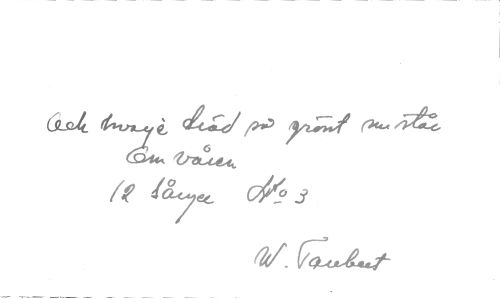 Och hvarje träd så grönt nu står
Om våren
12 Sånger No 3
W. Taubert